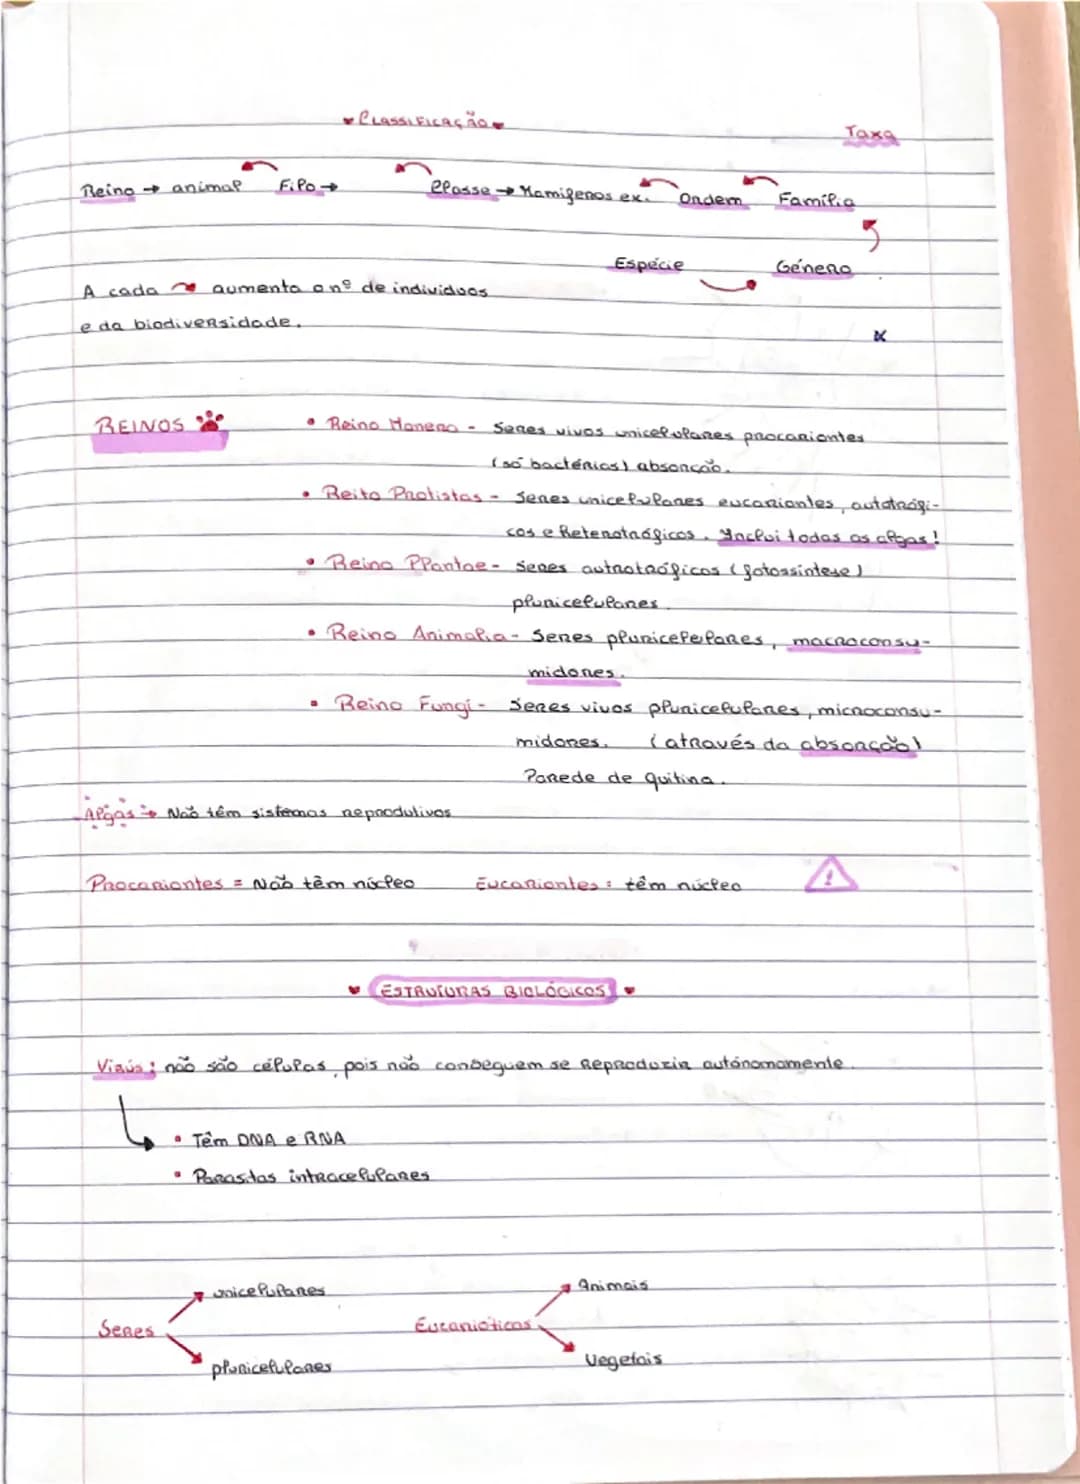 ♥ CLASSIFICAÇÃO ♥
Taxa
Reino → animal Filo → Classe → Mamiferos ex. Ordem Família
Espécie Género
A cada aumenta o nº de individuos
e da biodiversidade.
REINOS
• Reino Monera - Seres vivos unicelulares procariontes
(só bactérias) absorção.
• Reito Protistas - Seres unicelulares eucariontes, autotrógi-
cos e heterotróficos. Inclui todas as algas!
• Reino Plantae - Seres autrotróficos (fotossintese)
pluricelulares.
• Reino Animalia - Seres pluricelelares, macroconsu-
midores.
• Reino Fungi - Seres vivos pluricelulares, microconsu-
midores. (através da absorção)
Parede de quitina.
Algas → Não têm sistemas reprodutivos
Procariontes = Não têm núcleo Eucariontes: têm núcleo
!
♥ ESTRUTURAS BIOLÓGICOS ♥
Virús: não são células, pois não conseguem se Reproduzir autónomamente.
• Têm DNA e RNA
• Parasitas intracelulares
unicelulares Animais
Seres Eucarióticas
pluricelulares Vegetais